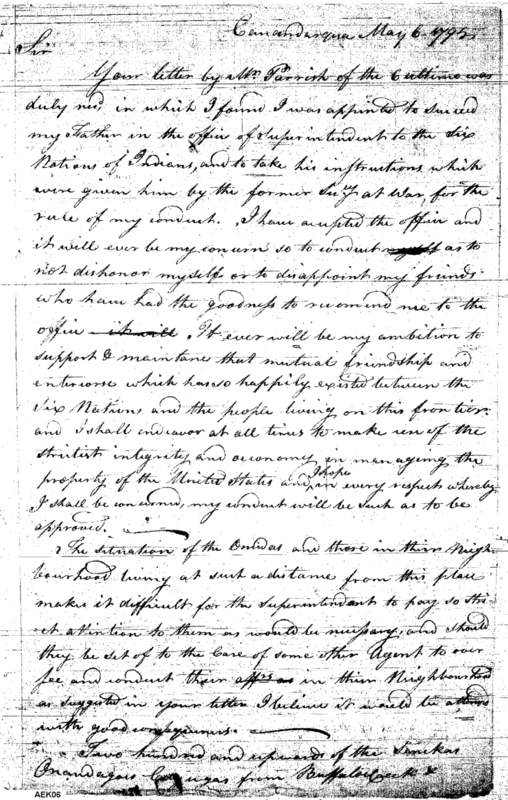 Canandarqua May 6. 1795.
Sir
Your letter by Mr. Parrish of the 6 ultimo was
duly recd. in which I found I was appinted to succeed
my Father in the office of Superintendent to the Six
Nations of Indians, and to take his instructions which
were given him by the former Secy. at War, for the
rule of my conduct. I have accepted the office and
it will ever be my concern so to conduct myself as to
not dishonor myself or to disappoint my friends
who have had the goodness to recomend me to the
office it will. It ever will be my ambition to
support & maintane that mutual friendship and
enteriorse which has so happily existed between the
Six Nations and the people living on this frontier
and I shall endeavor at all times to make use of the
strictest integrity and oeconomy in managing the
property of the United States and, I hope in every respect whereby
I shall be concerned, my conduct will be such as to be
approved.
The situation of the Oneidas and those in their Neigh
bourhood living at such a distame from this place
makes it difficult for the Superintendant to pay so stri
ct attention to them as would be necessary, and should
they be set of to the care of some other Agent to over
see and conduct their affrs as in their Neighbourhood
as suggested in your letter I believe it would be attend
with good consequences.
Two hundred and upwards of the Senekas
Onandagois Cayugas from Buffaloe Creek &
AEK06